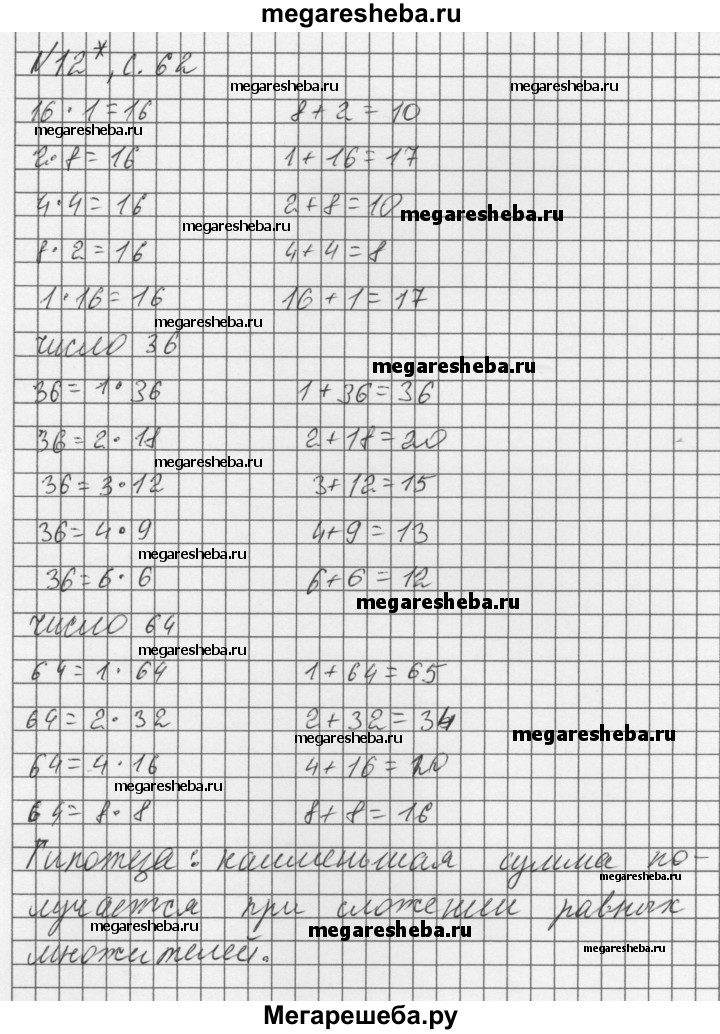 megaresheba.ru
N12*, с. 62
megaresheba.ru megaresheba.ru
16 · 1 = 16 8 + 2 = 10
megaresheba.ru
2 · 8 = 16 1 + 16 = 17
4 · 4 = 16 2 + 8 = 10 megaresheba.ru
megaresheba.ru
8 · 2 = 16 4 + 4 = 8
1 · 16 = 16 16 + 1 = 17
megaresheba.ru
число 36
megaresheba.ru
36 = 1 · 36 1 + 36 = 36
36 = 2 · 18 2 + 18 = 20
megaresheba.ru
36 = 3 · 12 3 + 12 = 15
36 = 4 · 9 4 + 9 = 13
megaresheba.ru
36 = 6 · 6 6 + 6 = 12
megaresheba.ru
число 64
megaresheba.ru
64 = 1 · 64 1 + 64 = 65
64 = 2 · 32 2 + 32 = 34
megaresheba.ru megaresheba.ru
64 = 4 · 16 4 + 16 = 20
megaresheba.ru
64 = 8 · 8 8 + 8 = 16
Гипотеза: наименьшая сумма по-
megaresheba.ru
лучается при сложении равных
megaresheba.ru megaresheba.ru
множителей.
megaresheba.ru
Мегарешеба.ру